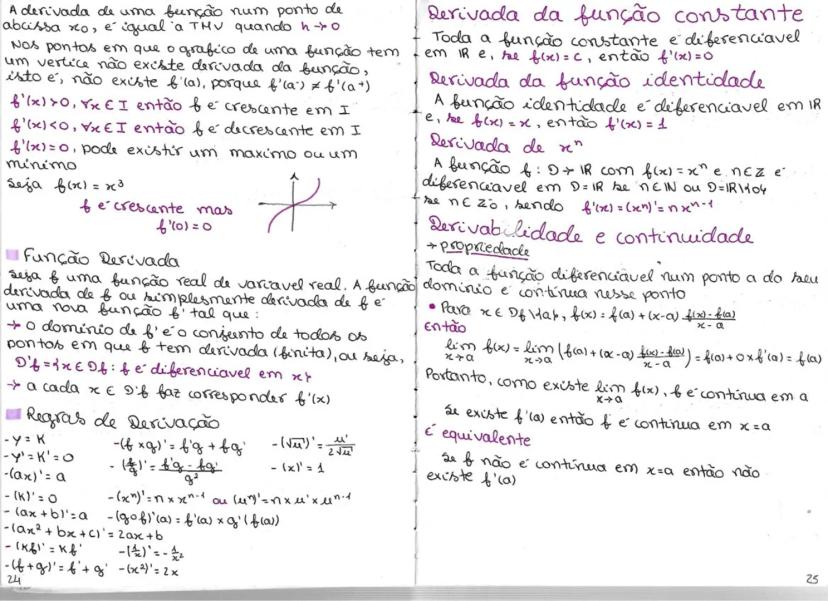 A derivada de uma função num ponto de
abcissa x₀, é igual à TMV quando h→0
Nos pontos em que o gráfico de uma função tem
um vertice não existe derivada da função,
isto é, não existe f'(a), porque f'(a⁻) ≠ f'(a⁺)
f'(x)>0, ∀x∈I então f é crescente em I
f'(x)<0, ∀x∈I então f é decrescente em I
f'(x)=0, pode existir um maximo ou um
mínimo
Seja f(x) = x³
f é crescente mas
f'(0)=0
Função Derivada
Seja f uma função real de variavel real. A função
derivada de f ou simplesmente derivada de f é
uma nova função f' tal que:
→ o domínio de f' é o conjunto de todos os
pontos em que f tem derivada (finita), ou seja,
D'f = {x ∈ Df : f é diferenciavel em x}
→ a cada x ∈ D'f faz corresponder f'(x)
Regras de Derivação
- y = K
- y' = K' = 0
- (ax)' = a
- (K)' = 0
- (ax + b)' = a
- (ax² + bx + c)' = 2ax + b
- (Kf)' = Kf'
- (f + g)' = f' + g'
- (f × g)' = f'g + fg'
- (f/g)' = (f'g - fg')/g²
- (xⁿ)' = n × xⁿ⁻¹ ou (uⁿ)' = n × u' × uⁿ⁻¹
- (g∘f)'(a) = f'(a) × g'(f(a))
- (1/x)' = -1/x²
- (x²)' = 2x
- (√u)' = u'/(2√u)
- (x)' = 1
24
Derivada da função constante
Toda a função constante é diferenciavel
em IR e, se f(x) = c, então f'(x)=0
Derivada da função identidade
A função identidade é diferenciavel em IR
e, se f(x) = x, então f'(x) = 1
Derivada de xⁿ
A função f: D→IR com f(x) = xⁿ e n∈Z é
diferenciavel em D=IR se n∈IN ou D=IR\{0}
se n∈Z₀⁻, sendo f'(x) = (xⁿ)' = n xⁿ⁻¹
Derivabilidade e continuidade
→ propriedade
Toda a função diferenciavel num ponto a do seu
domínio é contínua nesse ponto
• Para x ∈ Df\{a}, f(x) = f(a) + (x-a) (f(x)-f(a))/(x-a)
Então
lim x→a f(x) = lim x→a (f(a) + (x-a) (f(x)-f(a))/(x-a)) = f(a) + 0 × f'(a) = f(a)
Portanto, como existe lim x→a f(x), f é contínua em a
Se existe f'(a) então f é contínua em x=a
É equivalente
Se f não é contínua em x=a então não
existe f'(a)
25